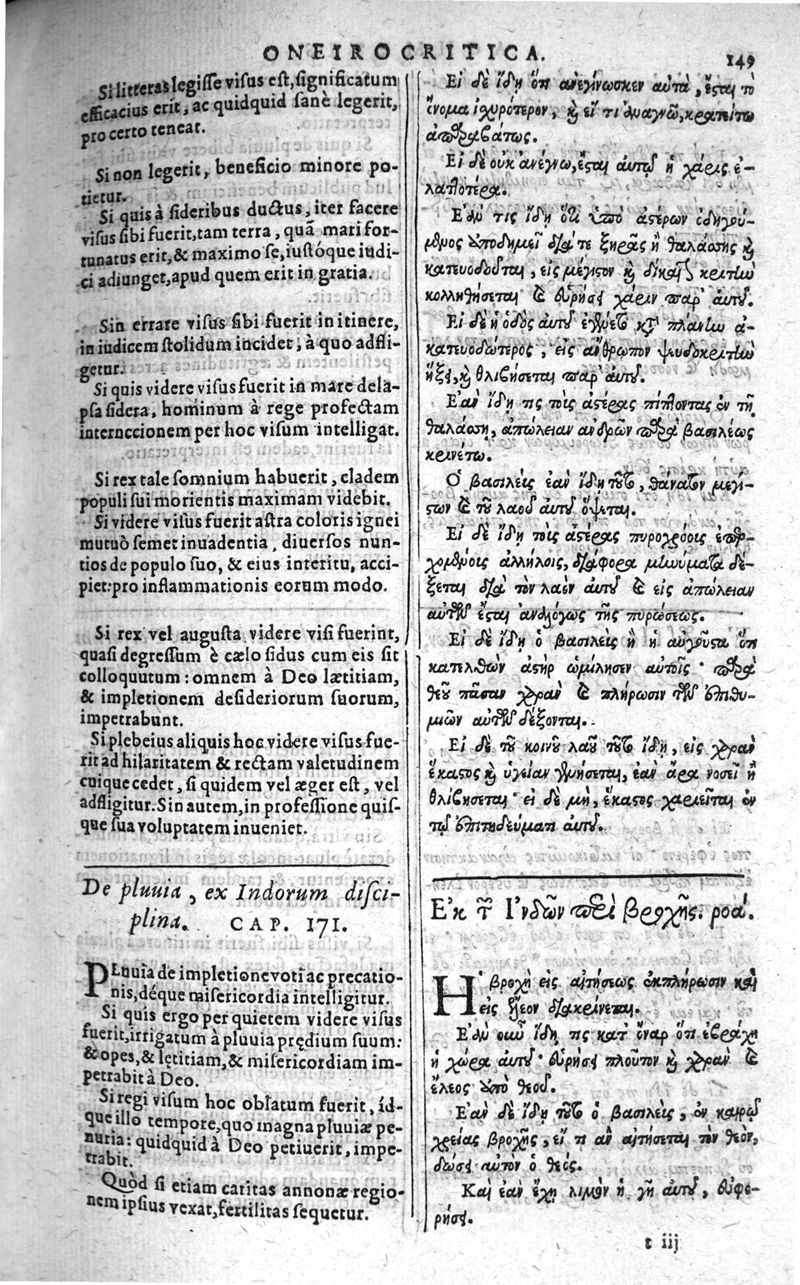 ONEIROCRITICA. 149
Si litteras legisse visus est, significatum
efficacius erit, ac quidquid sanè legerit,
pro certo teneat.
Si non legerit, beneficio minore po-
tietur.
Si quis à sideribus ductus, iter facere
visus sibi fuerit, tam terra, quâ mari for-
tunatus erit, & maximo se, iustóque iudi-
ci adiunget, apud quem erit in gratia.
Sin errare visus sibi fuerit in itinere,
in iudicem stolidum incidet, à quo adfli-
getur.
Si quis videre visus fuerit in mare dela-
psa sidera, hominum à rege profectam
internecionem per hoc visum intelligat.
Si rex tale somnium habuerit, cladem
populi sui morientis maximam videbit.
Si videre visus fuerit astra coloris ignei
mutuò semet inuadentia, diuersos nun-
tios de populo suo, & eius interitu, acci-
piet: pro inflammationis eorum modo.
Si rex vel augusta videre visi fuerint,
quasi degressum è cælo sidus cum eis sit
colloquutum: omnem à Deo lætitiam,
& impletionem desideriorum suorum,
impetrabunt.
Si plebeius aliquis hoc videre visus fue-
rit ad hilaritatem & rectam valetudinem
cuique cedet, si quidem vel æger est, vel
adfligitur. Sin autem, in professione quis-
que sua voluptatem inueniet.
De pluuia, ex Indorum disci-
plina. CAP. 171.
PLuuia de impletione voti ac precatio-
nis, déque misericordia intelligitur.
Si quis ergo per quietem videre visus
fuerit, irrigatum à pluuia prędium suum:
& opes, & lętitiam, & misericordiam im-
petrabit à Deo.
Si regi visum hoc oblatum fuerit, íd-
que illo tempore, quo magna pluuiæ pe-
nuria: quidquid à Deo petiuerit, impe-
trabit.
Quòd si etiam caritas annonæ regio-
nem ipsius vexat, fertilitas sequetur.
Εἰ δὲ ἴδῃ ὅτι ἀνεγίνωσκεν αὐτὰ, ἔσται τὸ
ὄνομα ἰχυρότερον, καὶ εἴ τι ἀναγνῶ, κρατείτω
ἀπαραβάτως.
Εἰ δὲ οὐκ ἀνέγνω, ἔσται αὐτῷ ἡ χάρις ἐ-
λαττοτέρα.
Ἐάν τις ἴδῃ ὅτι ὑπὸ ἀστέρων ὁδηγού-
μενος ἀποδημεῖ διά τε ξηρᾶς ἢ θαλάσσης καὶ
κατευοδοῦται, εἰς μέγιστον καὶ δίκαιον κριτὴν
κολληθήσεται καὶ εὑρήσει χάριν παρ' αὐτοῦ.
Εἰ δὲ ἡ ὁδὸς αὐτοῦ ἐγένετο κατὰ πλάνην ἀ-
κατευοδώτερος, εἰς ἄνθρωπον ψευδοκριτὴν
ἥξει, καὶ θλιβήσεται παρ' αὐτοῦ.
Ἐάν ἴδῃ τις τοὺς ἀστέρας πίπτοντας ἐν τῇ
θαλάσσῃ, ἀπώλειαν ἀνδρῶν παρὰ βασιλέως
κρινέτω.
Ὁ βασιλεὺς ἐὰν ἴδῃ τοῦτο, θάνατον μέγι-
στον καὶ τοῦ λαοῦ αὐτοῦ ὄψεται.
Εἰ δὲ ἴδῃ τοὺς ἀστέρας πυροχρόους ἐπερ-
χομένους ἀλλήλοις, διάφορα μηνύματα δέ-
ξεται διὰ τὸν λαὸν αὐτοῦ καὶ εἰς ἀπώλειαν
αὐτῶν ἔσται ἀναλόγως τῆς πυρώσεως.
Εἰ δὲ ἴδῃ ὁ βασιλεὺς ἢ ἡ αὐγοῦστα ὅτι
κατελθὼν ἀστὴρ ὡμίλησεν αὐτοῖς· παρὰ
θεοῦ πᾶσαν χαρὰν καὶ πλήρωσιν τῶν ἐπιθυ-
μιῶν αὐτῶν δέξονται.
Εἰ δὲ τοῦ κοινοῦ λαοῦ τοῦτο ἴδῃ, εἰς χαρὰν
ἕκαστος καὶ ὑγείαν γενήσεται, ἐὰν ἄρα νοσεῖ ἢ
θλιβήσεται· εἰ δὲ μὴ, ἕκαστος χαρεῖται ἐν
τῷ ἐπιτηδεύματι αὐτοῦ.
Ἐκ τῶν Ἰνδῶν περὶ βροχῆς. ροα.
Ἡ βροχὴ εἰς αἰτήσεως ἐκπλήρωσιν καὶ
εἰς ἔλεον διακρίνεται.
Ἐὰν οὖν ἴδῃ τις κατ' ὄναρ ὅτι ἐβράχη
ἡ χώρα αὐτοῦ· εὑρήσει πλοῦτον καὶ χαρὰν καὶ
ἔλεος ὑπὸ θεοῦ.
Ἐὰν δὲ ἴδῃ τοῦτο ὁ βασιλεὺς, ἐν καιρῷ
χρείας βροχῆς, εἴ τι ἂν αἰτήσεται τὸν θεὸν,
δώσει αὐτὸν ὁ θεός.
Καὶ ἐὰν ἔχῃ λιμὸν ἡ γῆ αὐτοῦ, εὐφο-
ρήσει.
t iij